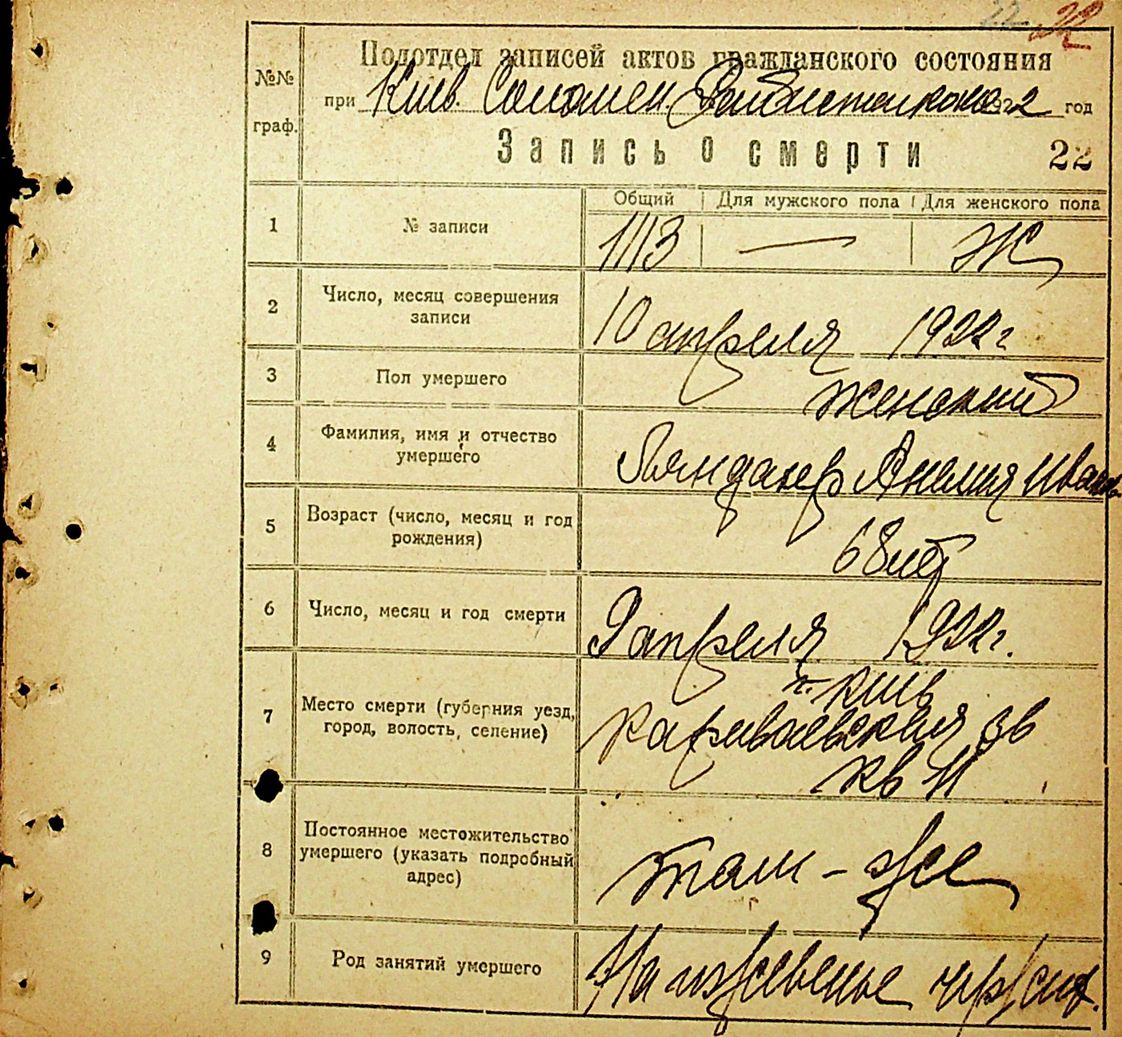 22 22
Подотдел записей актов гражданского состояния
№№ граф.
при Киев. Соломен. 1922 год
Запись о смерти 22
Общий Для мужского пола Для женского пола
1 № записи 1113 — Ж
2 Число, месяц совершения
записи
10 апреля 1922 г
3 Пол умершего женский
4 Фамилия, имя и отчество
умершего
Анелия Иван
5 Возраст (число, месяц и год
рождения)
68 лет
6 Число, месяц и год смерти 9 апреля 1922 г.
7 Место смерти (губерния уезд,
город, волость, селение)
г. Киев
Караваевская
кв 11
8 Постоянное местожительство
умершего (указать подробный
адрес)
там-же
9 Род занятий умершего На ижевенье